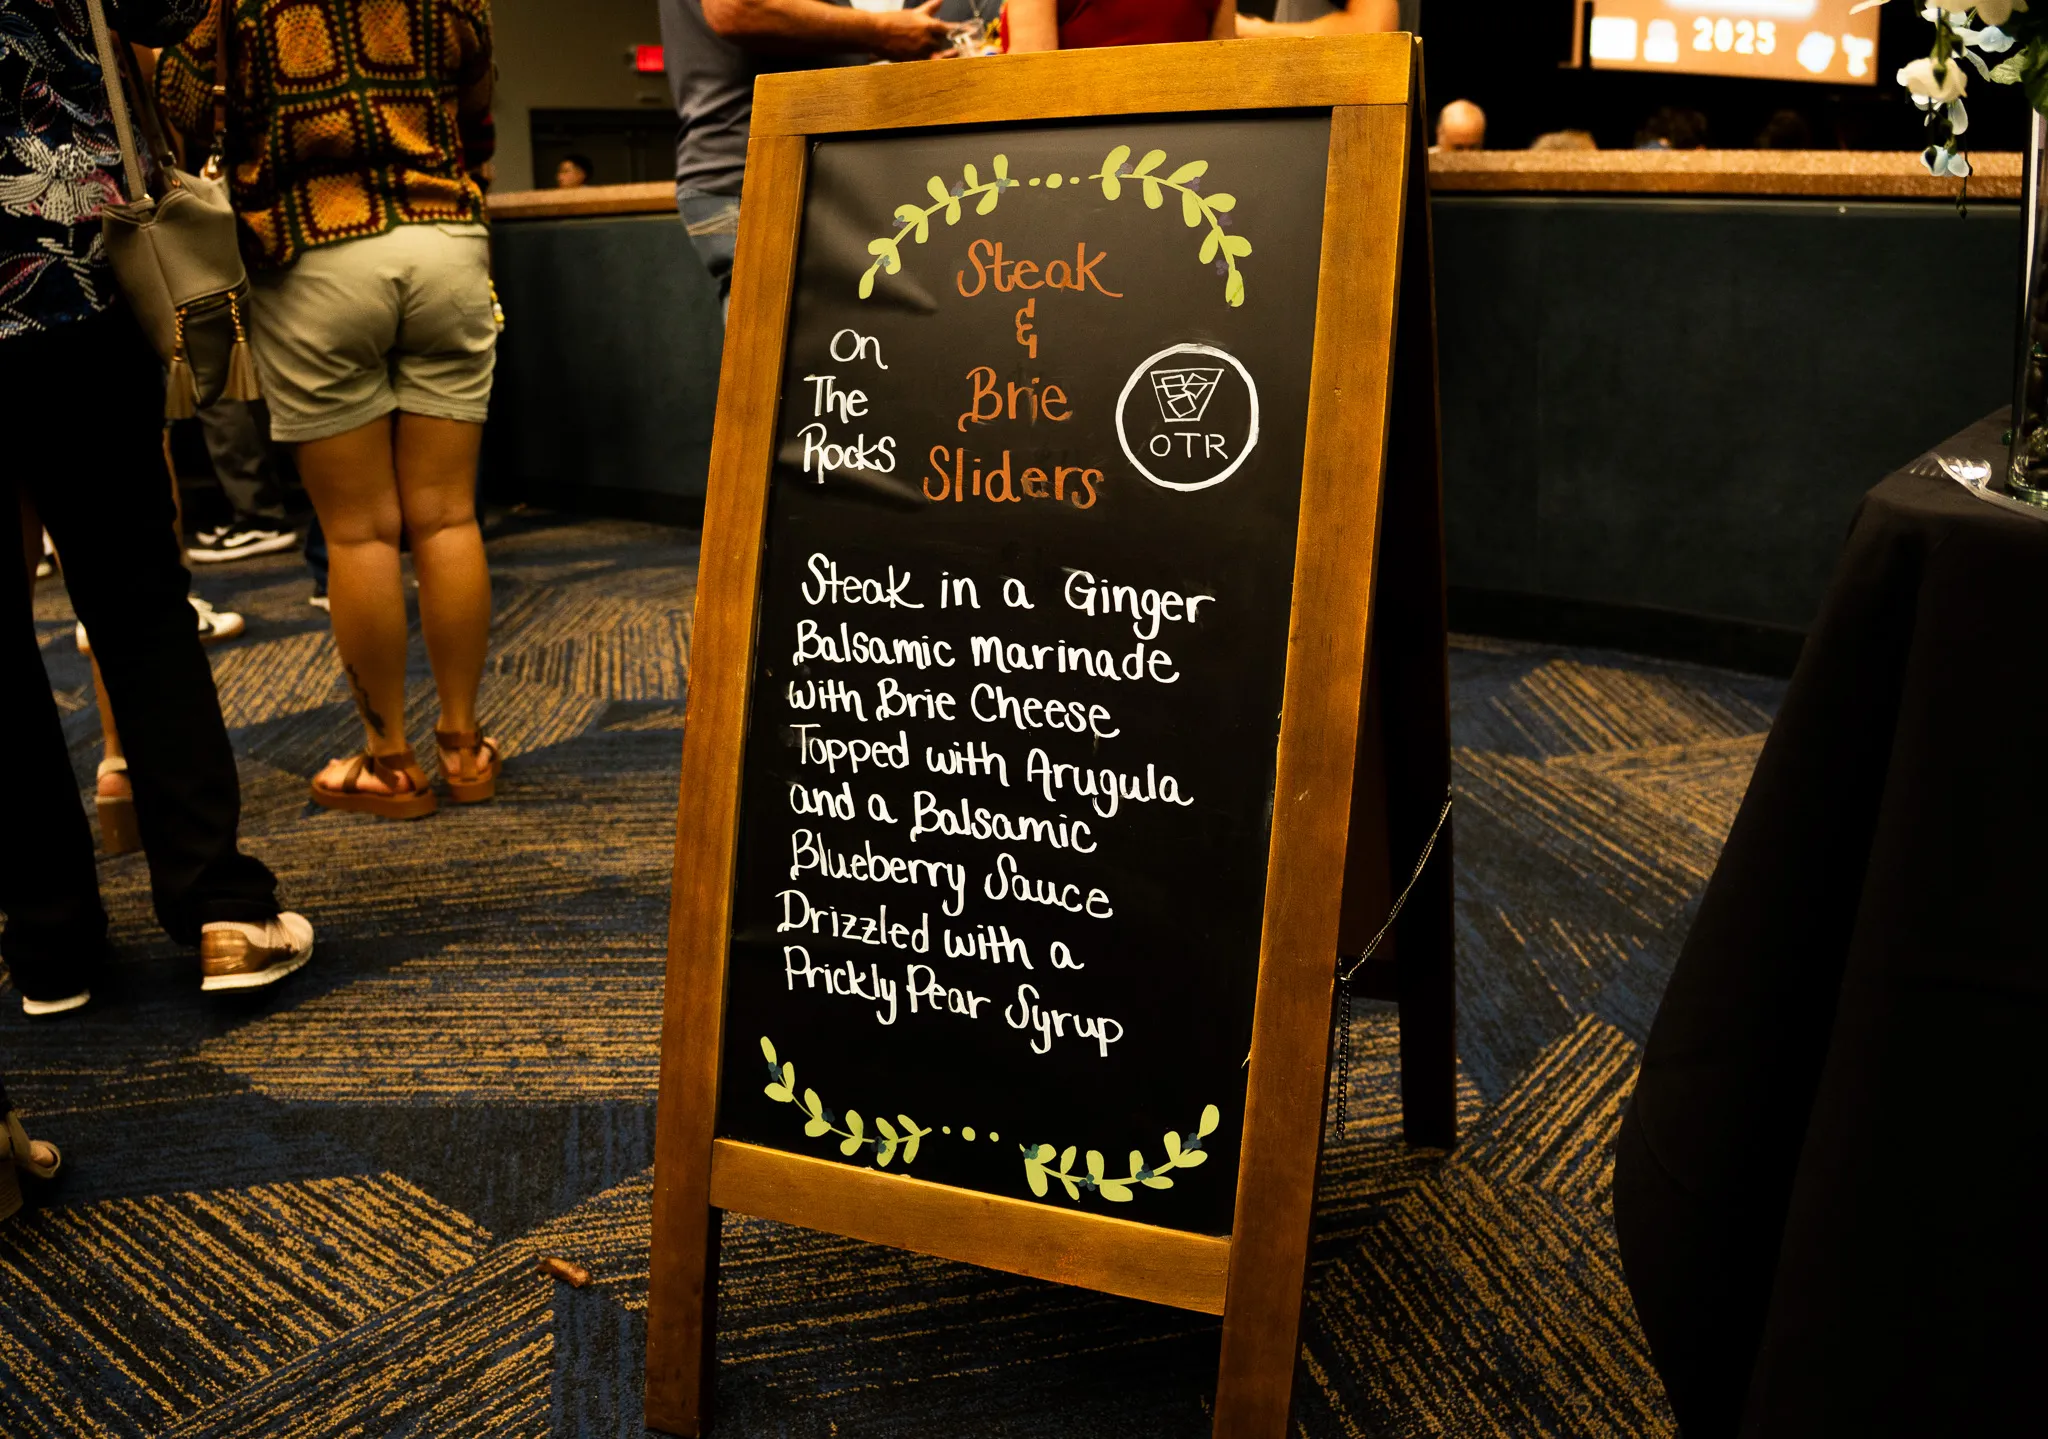 2025
Steak
&
Brie
Sliders
On
The
Rocks
OTR
Steak in a Ginger
Balsamic Marinade
with Brie Cheese
Topped with Arugula
and a Balsamic
Blueberry Sauce
Drizzled with a
Prickly Pear Syrup